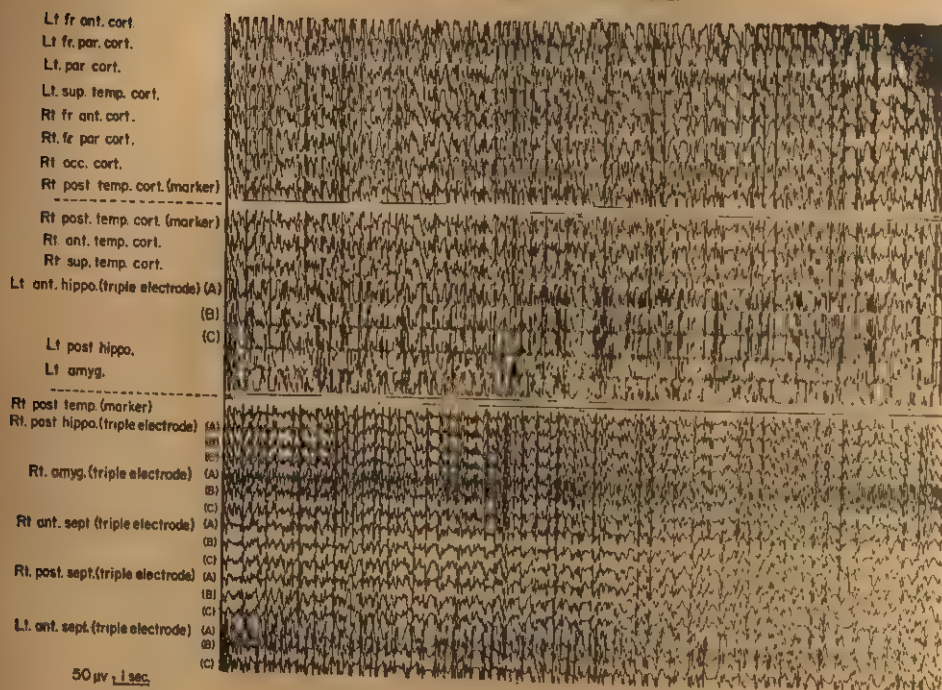 Lt fr ant. cort.
Lt fr. par. cort.
Lt. par cort.
Lt. sup. temp. cort.
Rt fr ant. cort.
Rt. fr par cort.
Rt occ. cort.
Rt post temp. cort. (marker)
Rt post. temp. cort. (marker)
Rt. ant. temp. cort.
Rt sup. temp. cort.
Lt ant. hippo. (triple electrode) (A)
(B)
(C)
Lt post hippo.
Lt amyg.
Rt post temp. (marker)
Rt. post hippo. (triple electrode) (A)
(B)
Rt. amyg. (triple electrode) (A)
(B)
(C)
Rt ant. sept (triple electrode) (A)
(B)
(C)
Rt. post. sept. (triple electrode) (A)
(B)
(C)
Lt. ant. sept. (triple electrode) (A)
(B)
(C)
50 μv 1 sec.